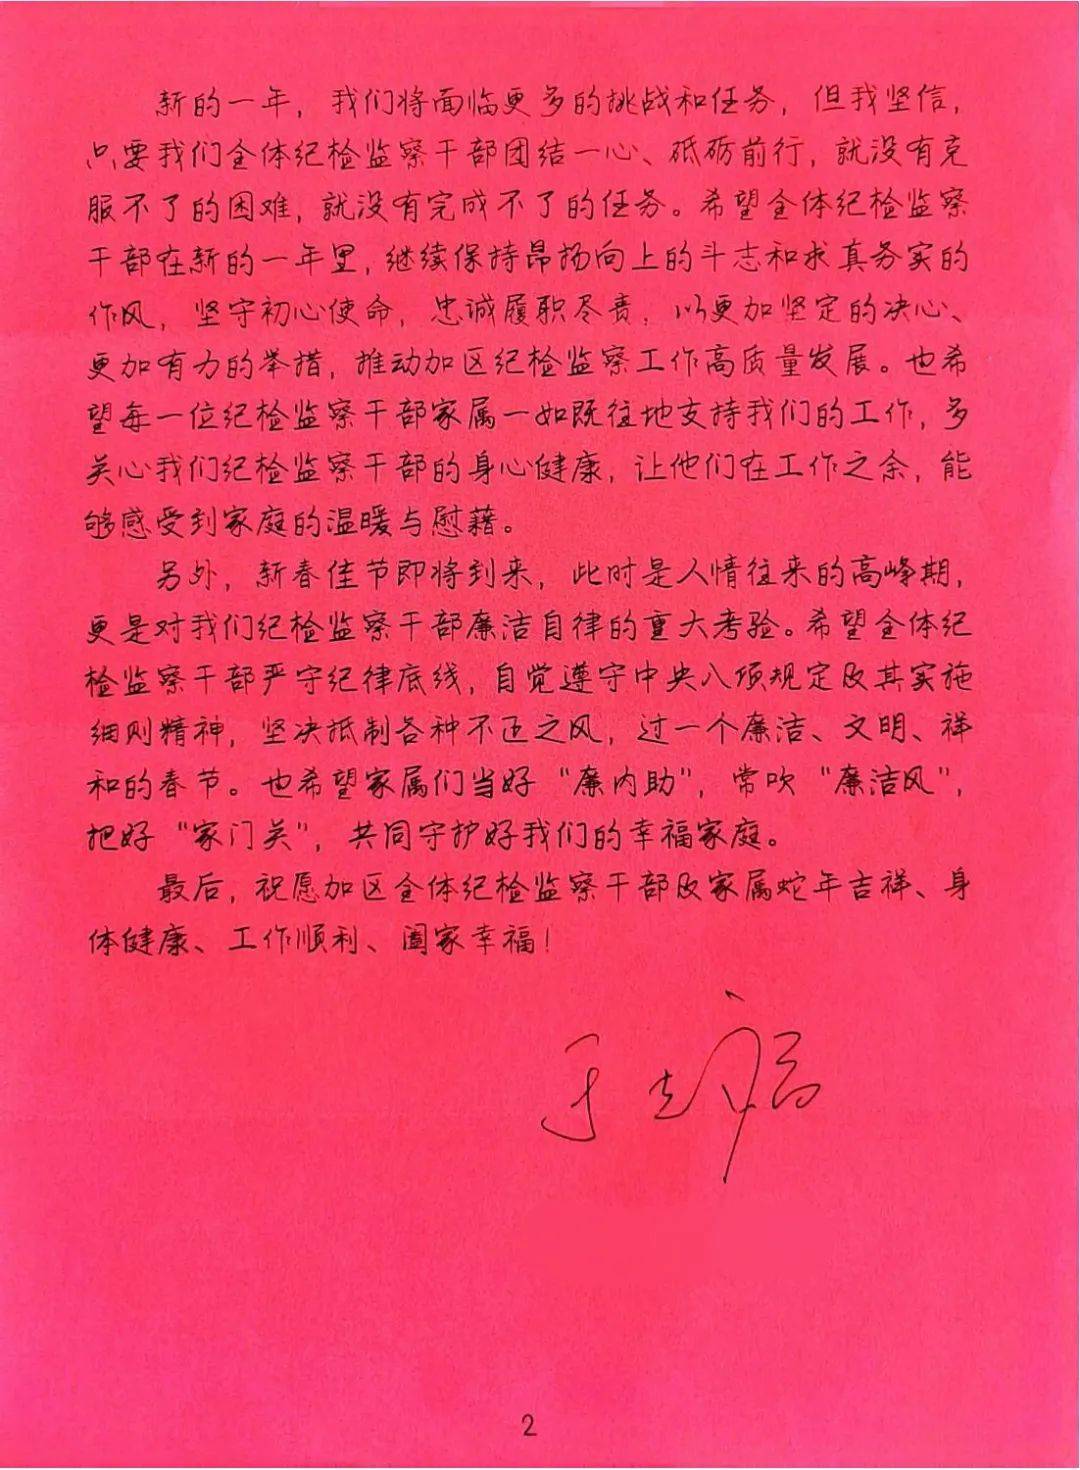 新的一年，我们将面临更多的挑战和任务，但我坚信，
只要我们全体纪检监察干部团结一心、砥砺前行，就没有克
服不了的困难，就没有完成不了的任务。希望全体纪检监察
干部在新的一年里，继续保持昂扬向上的斗志和求真务实的
作风，坚守初心使命，忠诚履职尽责，以更加坚定的决心、
更加有力的举措，推动加区纪检监察工作高质量发展。也希
望每一位纪检监察干部家属一如既往地支持我们的工作，多
关心我们纪检监察干部的身心健康，让他们在工作之余，能
够感受到家庭的温暖与慰藉。
另外，新春佳节即将到来，此时是人情往来的高峰期，
更是对我们纪检监察干部廉洁自律的重大考验。希望全体纪
检监察干部严守纪律底线，自觉遵守中央八项规定及其实施
细则精神，坚决抵制各种不正之风，过一个廉洁、文明、祥
和的春节。也希望家属们当好“廉内助”，常吹“廉洁风”，
把好“家门关”，共同守护好我们的幸福家庭。
最后，祝愿加区全体纪检监察干部及家属蛇年吉祥、身
体健康、工作顺利、阖家幸福！
2